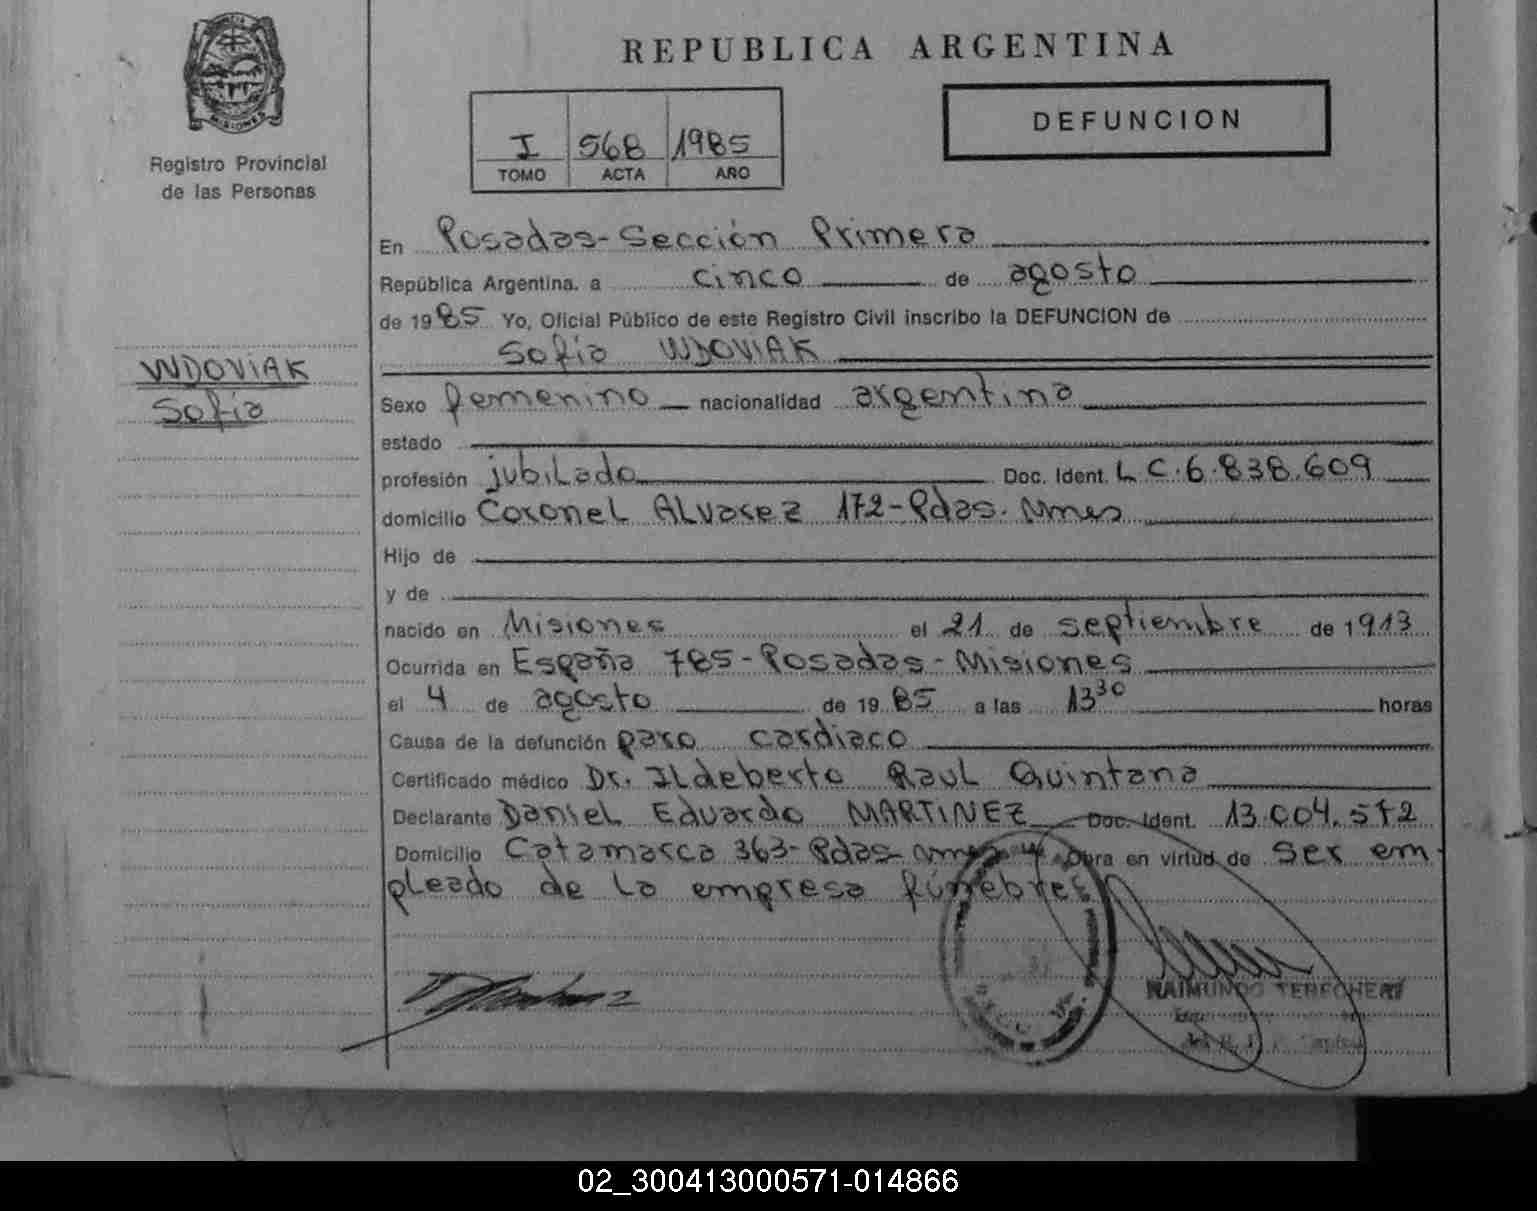 REPUBLICA ARGENTINA
MISIONES
Registro Provincial
de las Personas
I 568 1985
TOMO ACTA AÑO
DEFUNCION
En Posadas-Sección Primera
República Argentina, a cinco de agosto
de 1985 Yo, Oficial Público de este Registro Civil inscribo la DEFUNCION de
Sofia WDOVIAK
WDOVIAK
Sofia
Sexo femenino nacionalidad argentina
estado
profesión jubilada Doc. Ident. L C. 6.838.609
domicilio Coronel Alvarez 172-Pdas. Mnes
Hijo de
y de
nacido en Misiones el 21 de septiembre de 1913
Ocurrida en España 785-Posadas-Misiones
el 4 de agosto de 1985 a las 13 30 horas
Causa de la defunción paro cardiaco
Certificado médico Dr. Ildeberto Raul Quintana
Declarante Daniel Eduardo MARTINEZ Doc. Ident. 13.004.572
Domicilio Catamarca 363-Pdas-Mnes y Obra en virtud de ser em-
pleado de la empresa fúnebres
RAIMUNDO TERECHERI
02_300413000571-014866